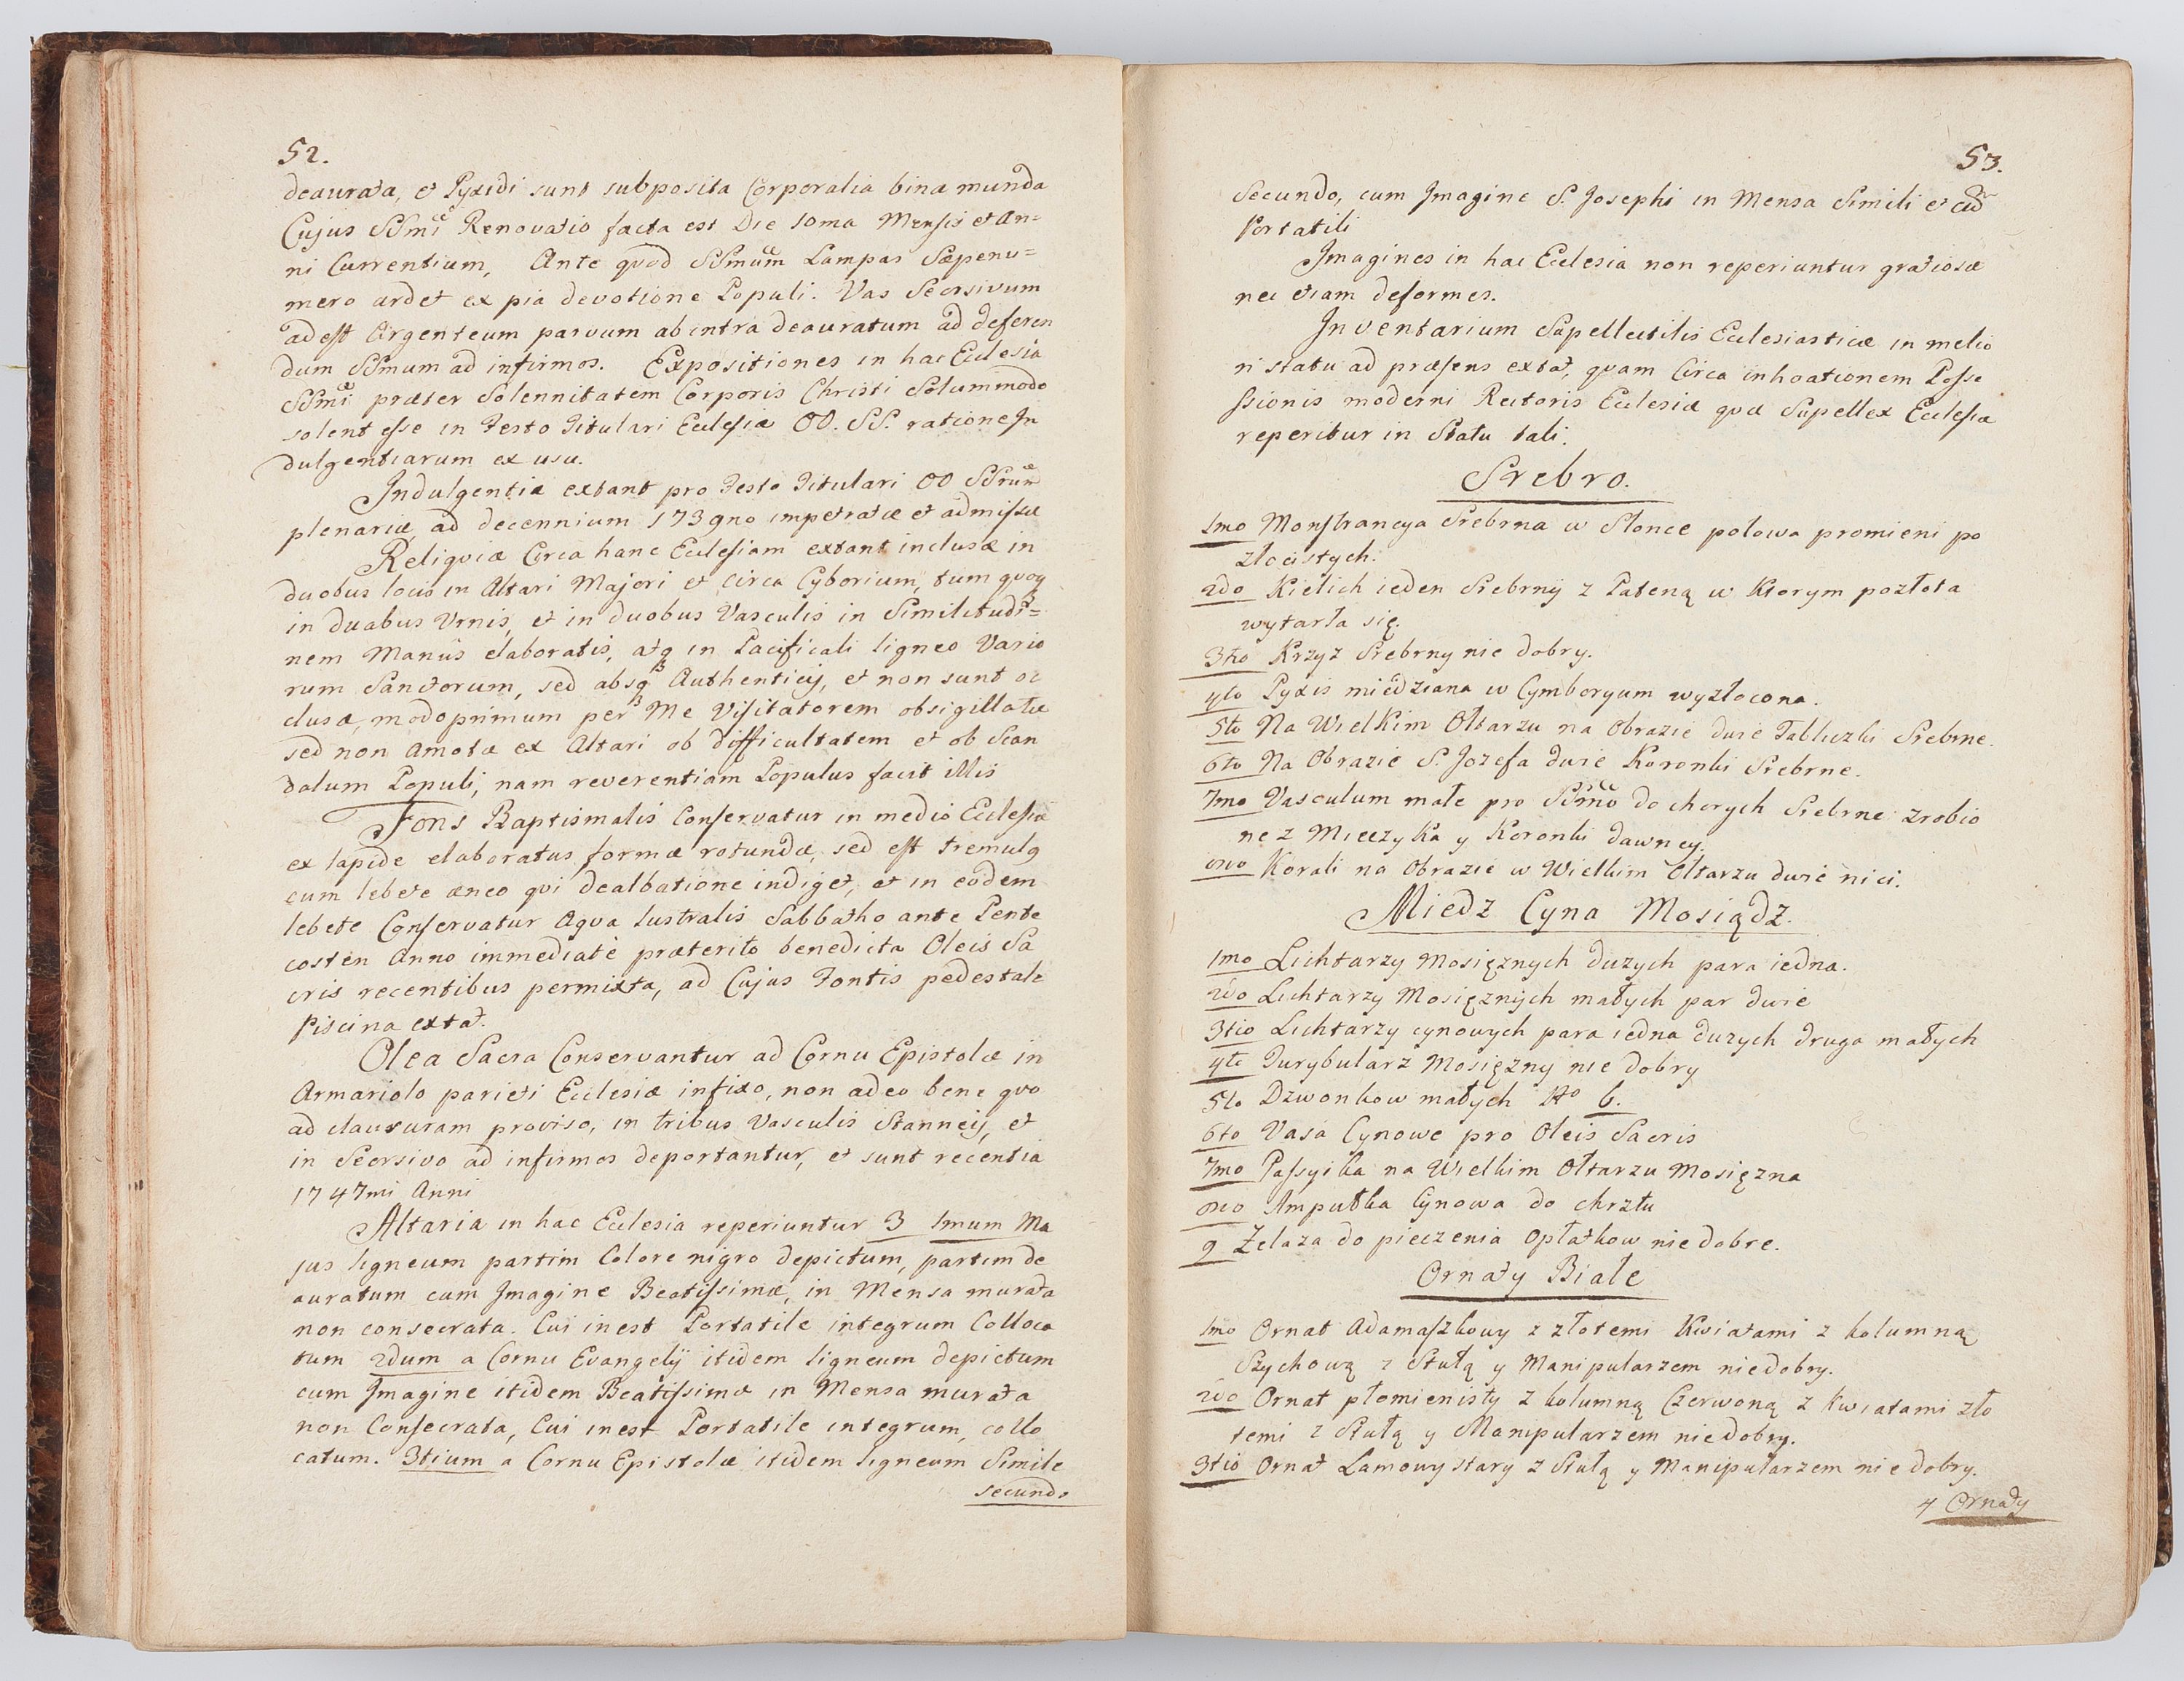 52.
deaurata, et Pyxidi sunt subposita Corporalia bina munda
Cujus SSmi Renovatio facta est Die 10ma Mensis et An=
ni Currentium, Ante quod SSmum Lampas Sæpenu=
mero ardet ex pia devotione Populi. Vas Seorsivum
adest Argenteum parvum ab intra deauratum ad deferen
dum SSmum ad infirmos. Expositiones in hac Ecclesia
SSmi præter Solennitatem Corporis Christi Solummodo
solent esse in Festo Titulari Ecclesiæ OO. SS. ratione In
dulgentiarum ex usu.
Indulgentiæ extant pro Festo Titulari OO SSrum
plenariæ, ad decennium 1739no impetratæ et admissæ
Reliquiæ Circa hanc Ecclesiam extant inclusæ in
duobus locis in Altari Majori et circa Cyborium, tum quoq
in duabus Urnis, et in duobus Vasculis in Similitudi=
nem Manûs elaboratis, atq in Pacificali ligneo Vario
rum Sanctorum, sed absq Authenticij, et non sunt oc
clusæ, modo primum per Me Visitatorem obsigillatæ
sed non amotæ ex Altari ob difficultatem et ob Scan
dalum Populi, nam reverentiam Populus facit illis
Fons Baptismalis Conservatur in medio Ecclesiæ
ex lapide elaboratus formæ rotundæ, sed est tremulg
cum lebete æneo qui dealbatione indiget, et in eodem
lebete Conservatur Aqva lustralis Sabbatho ante Pente
costen Anno immediatè præterito benedicta Oleis Sa
cris recentibus permixta, ad Cujus Fontis pedestale
Piscina extat.
Olea Sacra Conservantur ad Cornu Epistolæ in
Armariolo parieti Ecclesiæ infixo, non adeo bene quo
ad clausuram proviso, in tribus Vasculis Stanneij, et
in Seorsivo ad infirmos deportantur, et sunt recentia
1747mi Anni
Altaria in hac Ecclesia reperiuntur 3 1mum Ma
jus ligneum partim Colore nigro depictum, partim de
auratum cum Imagine Beatissimæ, in Mensa murata
non consecrata. Cui inest Portatile integrum Colloca
tum 2dum a Cornu Evangelij itidem ligneum depictum
cum Imagine itidem Beatissimæ in Mensa murata
non Consecrata, Cui inest Portatile integrum, collo
catum. 3tium a Cornu Epistolæ itidem ligneum Simile
secundo
53.
Secundo, cum Imagine S. Josephi in Mensa Simili et cu
Portatili
Imagines in hac Ecclesia non reperiuntur gratiosæ
nec etiam deformes.
Inventarium Supellectilis Ecclesiasticæ in melio
ri statu ad præsens extat, quam Circa inhoationem Posse
ssionis moderni Rectoris Ecclesiæ quæ Supellex Ecclesiæ
reperitur in Statu tali.
Srebro.
1mo Monstrancya Srebrna w Słonce połowa promieni po
złocistych.
2do Kielich ieden Srebrny z Pateną w Ktorym pozłota
wytarła się.
3tio Krzyz Srebrny nie dobry.
4to Pyxis miedziana w Cymboryum wyzłocona.
5to Na Wielkim Ołtarzu na Obrazie dwie Tabliczki Srebrne.
6to Na Obrazie S. Jozefa dwie Koronki Srebrne.
7mo Vasculum małe pro SSmo do chorych Srebrne zrobio
ne z Mieczyka y Koronki dawney.
8vo Korali na Obrazie w Wielkim Ołtarzu dwie nici.
Miedz Cyna Mosiądz.
1mo Lichtarzy Mosięznych duzych para iedna.
2do Lichtarzy Mosięznych małych par dwie
3tio Lichtarzy cynowych para iedna duzych druga małych
4to Turybularz Mosięzny nie dobry
5to Dzwonkow małych No 6.
6to Vasa Cynowe pro Oleis Sacris
7mo Passyika na Wielkim Ołtarzu Mosięzna
8vo Ampułka Cynowa do chrztu
9 Zelaza do pieczenia Opłatkow nie dobre.
Ornaty Białe
1mo Ornat Adamaszkowy z złotemi Kwiatami z kolumną
Szychową z Stułą y Manipularzem niedobry.
2do Ornat płomienisty z kolumną Czerwoną z kwiatami zło
temi z Stułą y Manipularzem niedobry.
3tio Ornat Lamowy stary z Stułą y Manipularzem nie dobry.
4 Ornaty